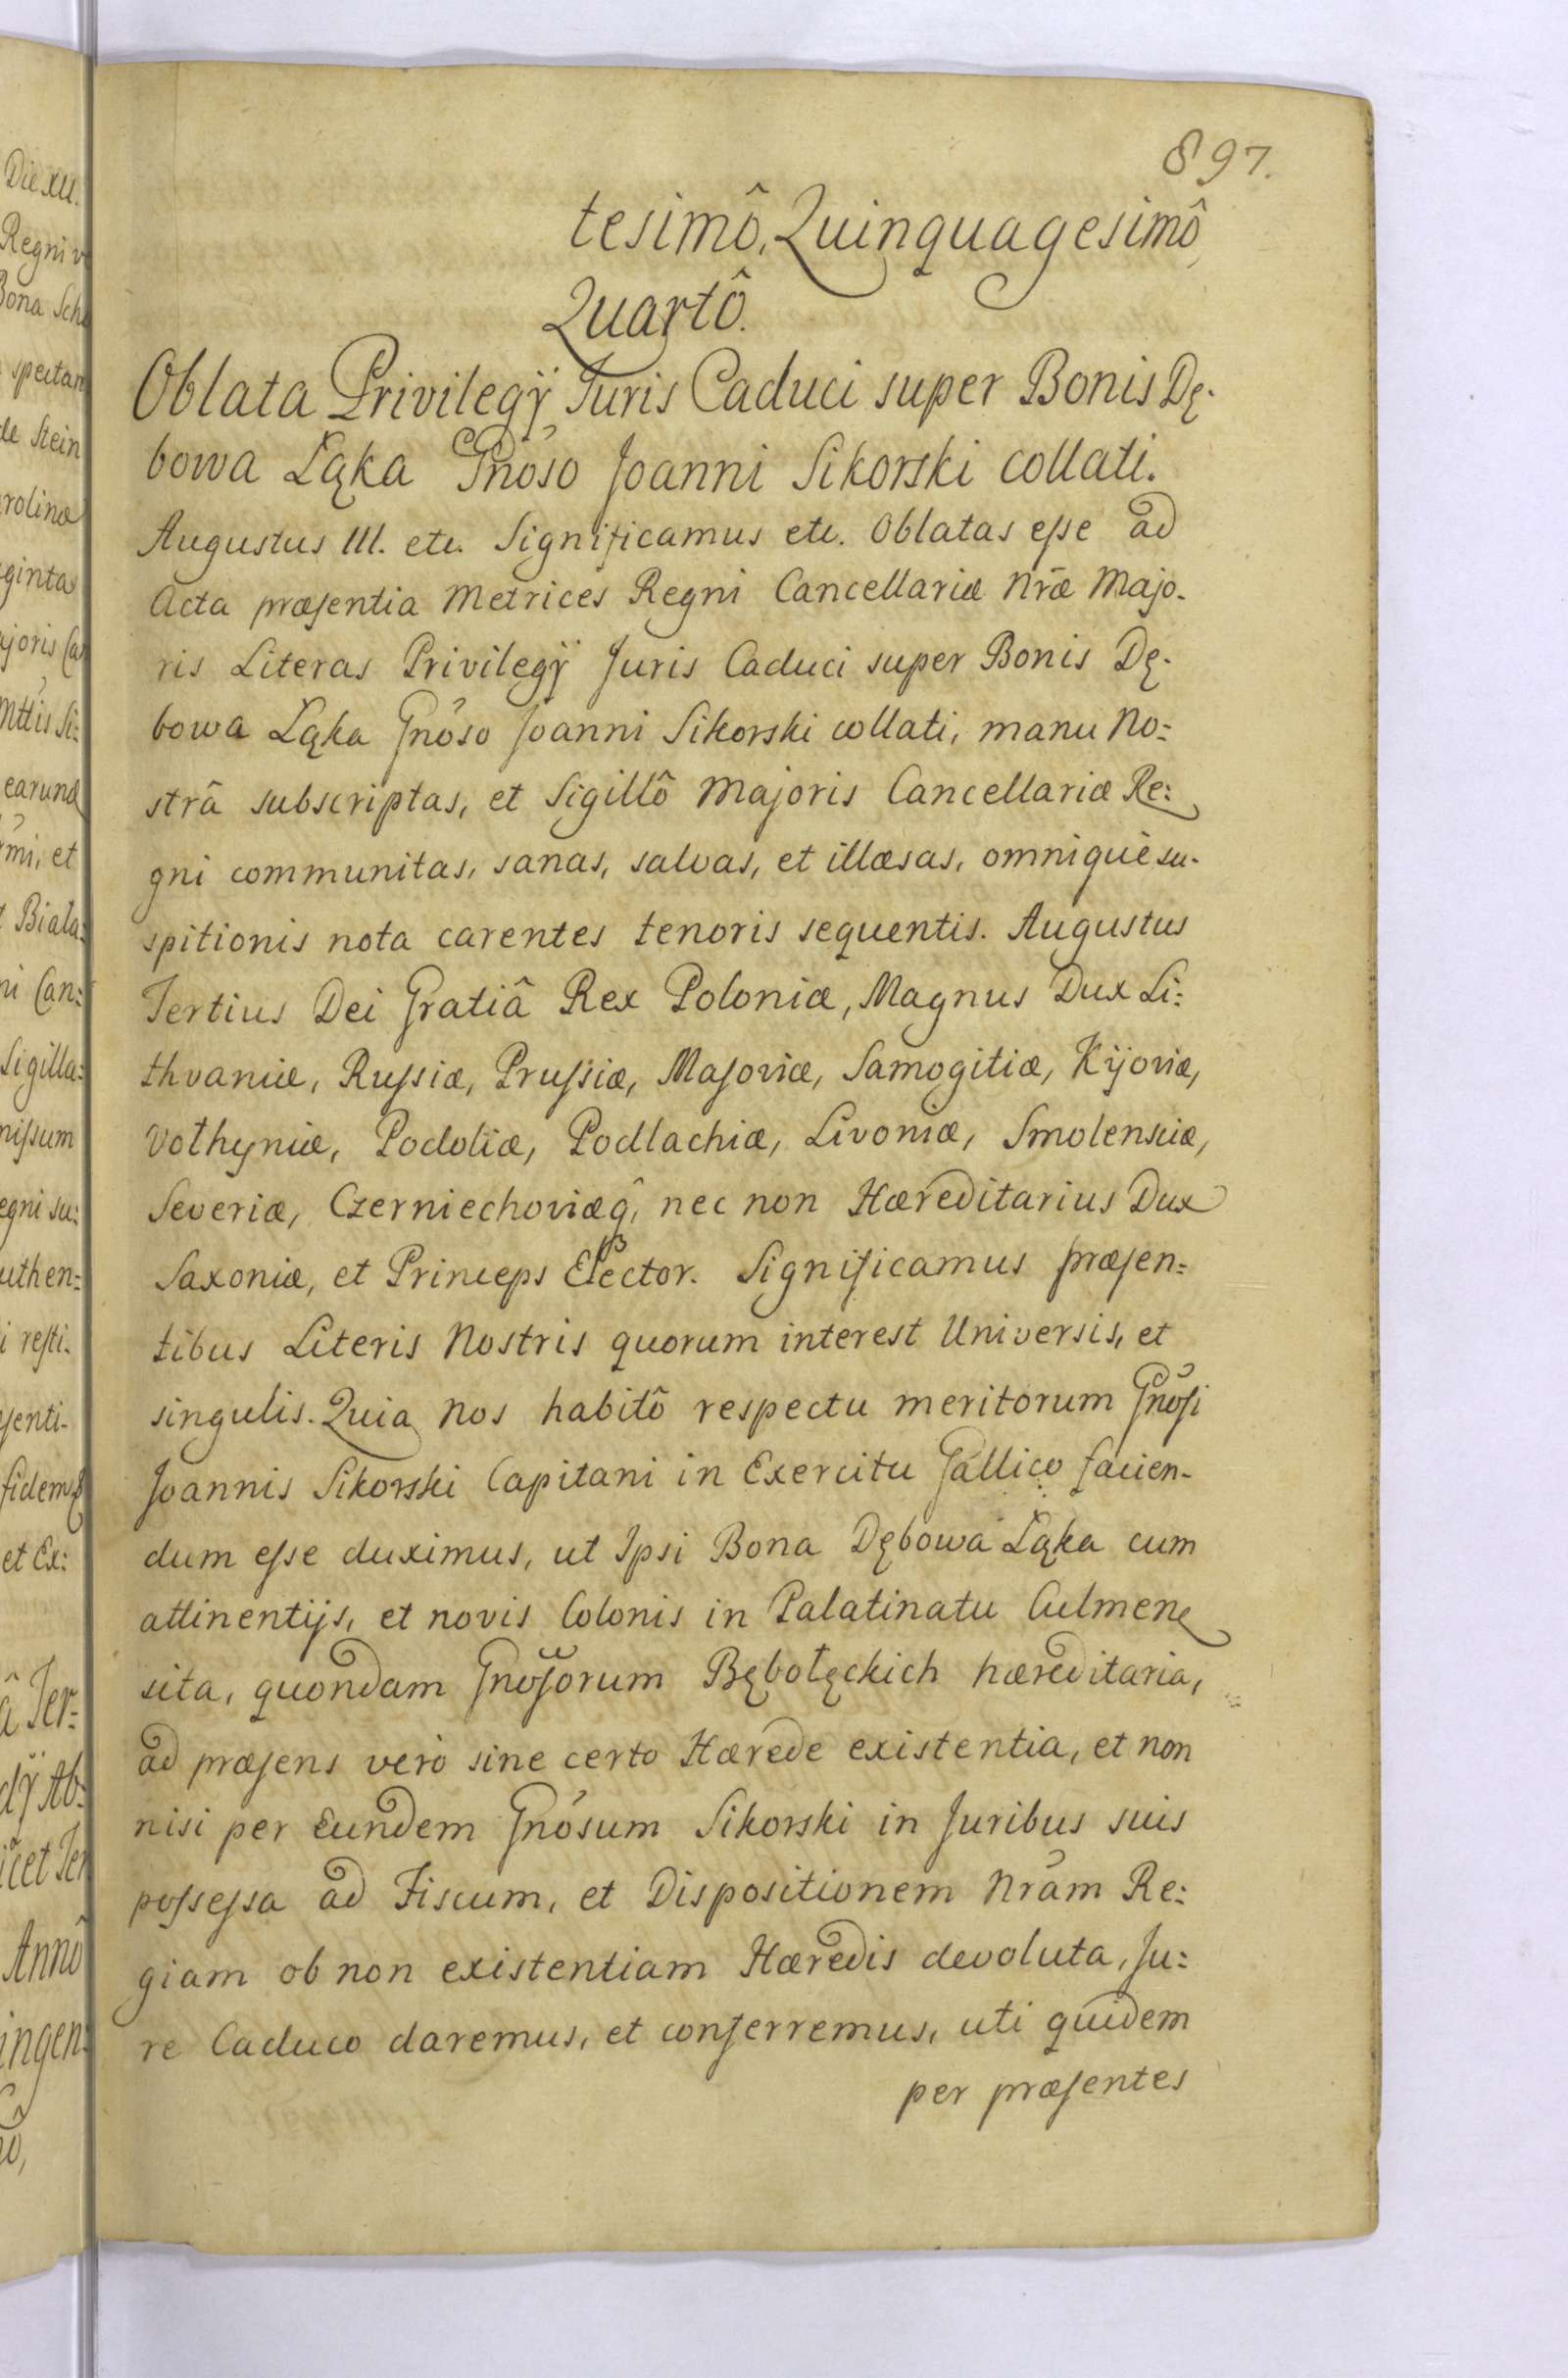 897.
tesimô, Quinquagesimô
Quartô.
Oblata Privilegÿ Juris Caduci super Bonis Dę-
bowa Ląka Gnõso Joanni Sikorski collati.
Augustus III. etc. Significamus etc. Oblatas eſse ad
Acta præsentia Metrices Regni Cancellariæ Nræ Majo-
ris Literas Privilegÿ Juris Caduci super Bonis Dę-
bowa Ląka Gnõso Joanni Sikorski collati, manu No=
strâ subscriptas, et Sigillô Majoris Cancellariæ Re=
gni communitas, sanas, salvas, et illæsas, omnique su-
spitionis nota carentes tenoris sequentis. Augustus
Tertius Dei Gratiâ Rex Poloniæ, Magnus Dux Li=
thvaniæ, Ruſsiæ, Pruſsiæ, Masoviæ, Samogitiæ, Kijoviæ,
Volhyniæ, Podoliæ, Podlachiæ, Livoniæ, Smolensciæ,
Severiæ, Czerniechoviæq, nec non Hæreditarius Dux
Saxoniæ, et Princeps Elector. Significamus præsen=
tibus Literis Nostris quorum interest Universis, et
singulis. Quia Nos habitô respectu meritorum Gnõsi
Joannis Sikorski Capitani in Exercitu Gallico facien-
dum eſse duximus, ut Ipsi Bona Dębowa Ląka cum
attinentijs, et novis Colonis in Palatinatu Culmen
sita, quondam Gnosorum Bębołęckich hæreditaria,
ad præsens verò sine certo Hærede existentia, et non
nisi per Eundem Gnõsum Sikorski in Juribus suis
poſseſsa ad Fiscum, et Dispositionem Nrãm Re=
giam ob non existentiam Hæredis devoluta, Ju=
re Caduco daremus, et conferremus, uti quidem
per præsentes